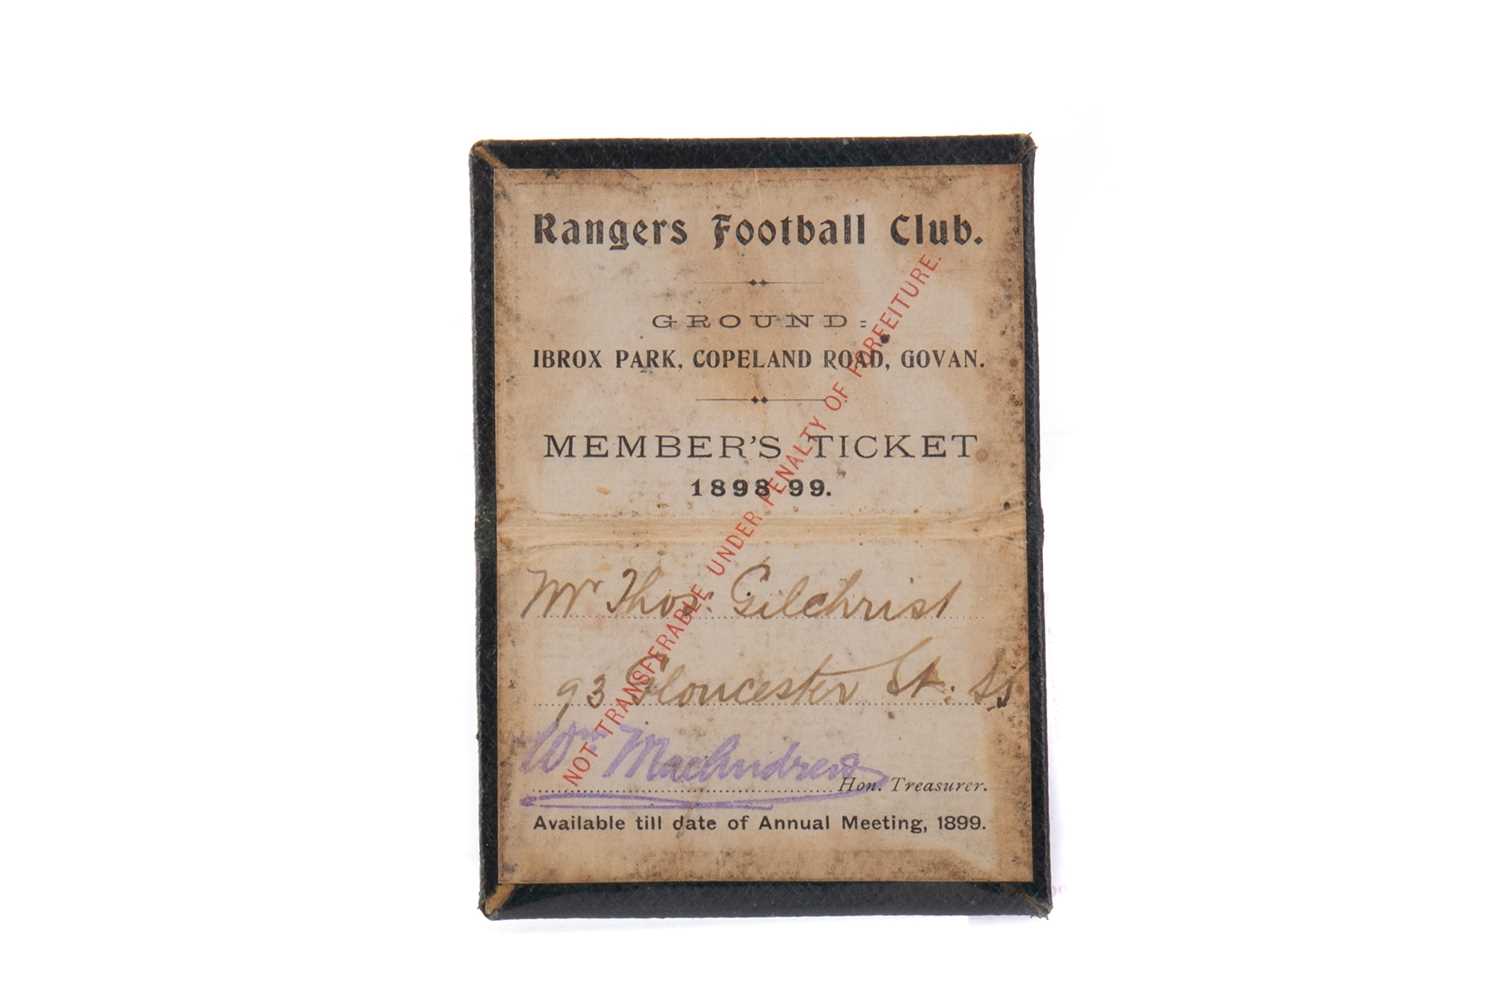 Rangers Football Club.
GROUND:
IBROX PARK, COPELAND ROAD, GOVAN.
MEMBER'S TICKET
1898-99.
Mr Thos. Gilchrist
93 Gloucester St: SS
Wm MacAndrew
Hon. Treasurer.
Available till date of Annual Meeting, 1899.
NOT TRANSFERABLE UNDER PENALTY OF FORFEITURE.